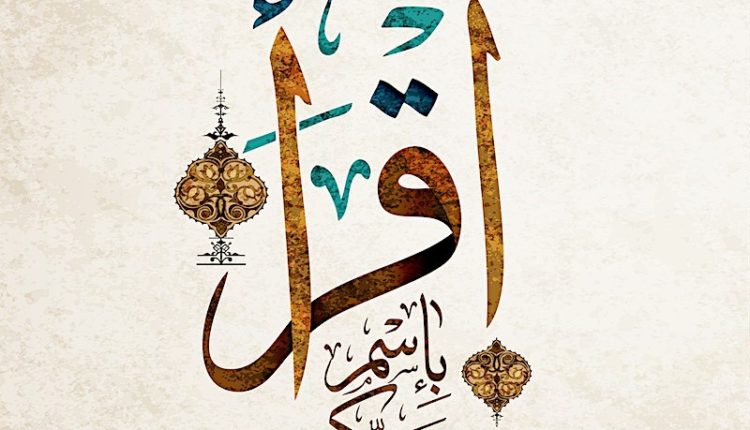 اقرأ
بإسم